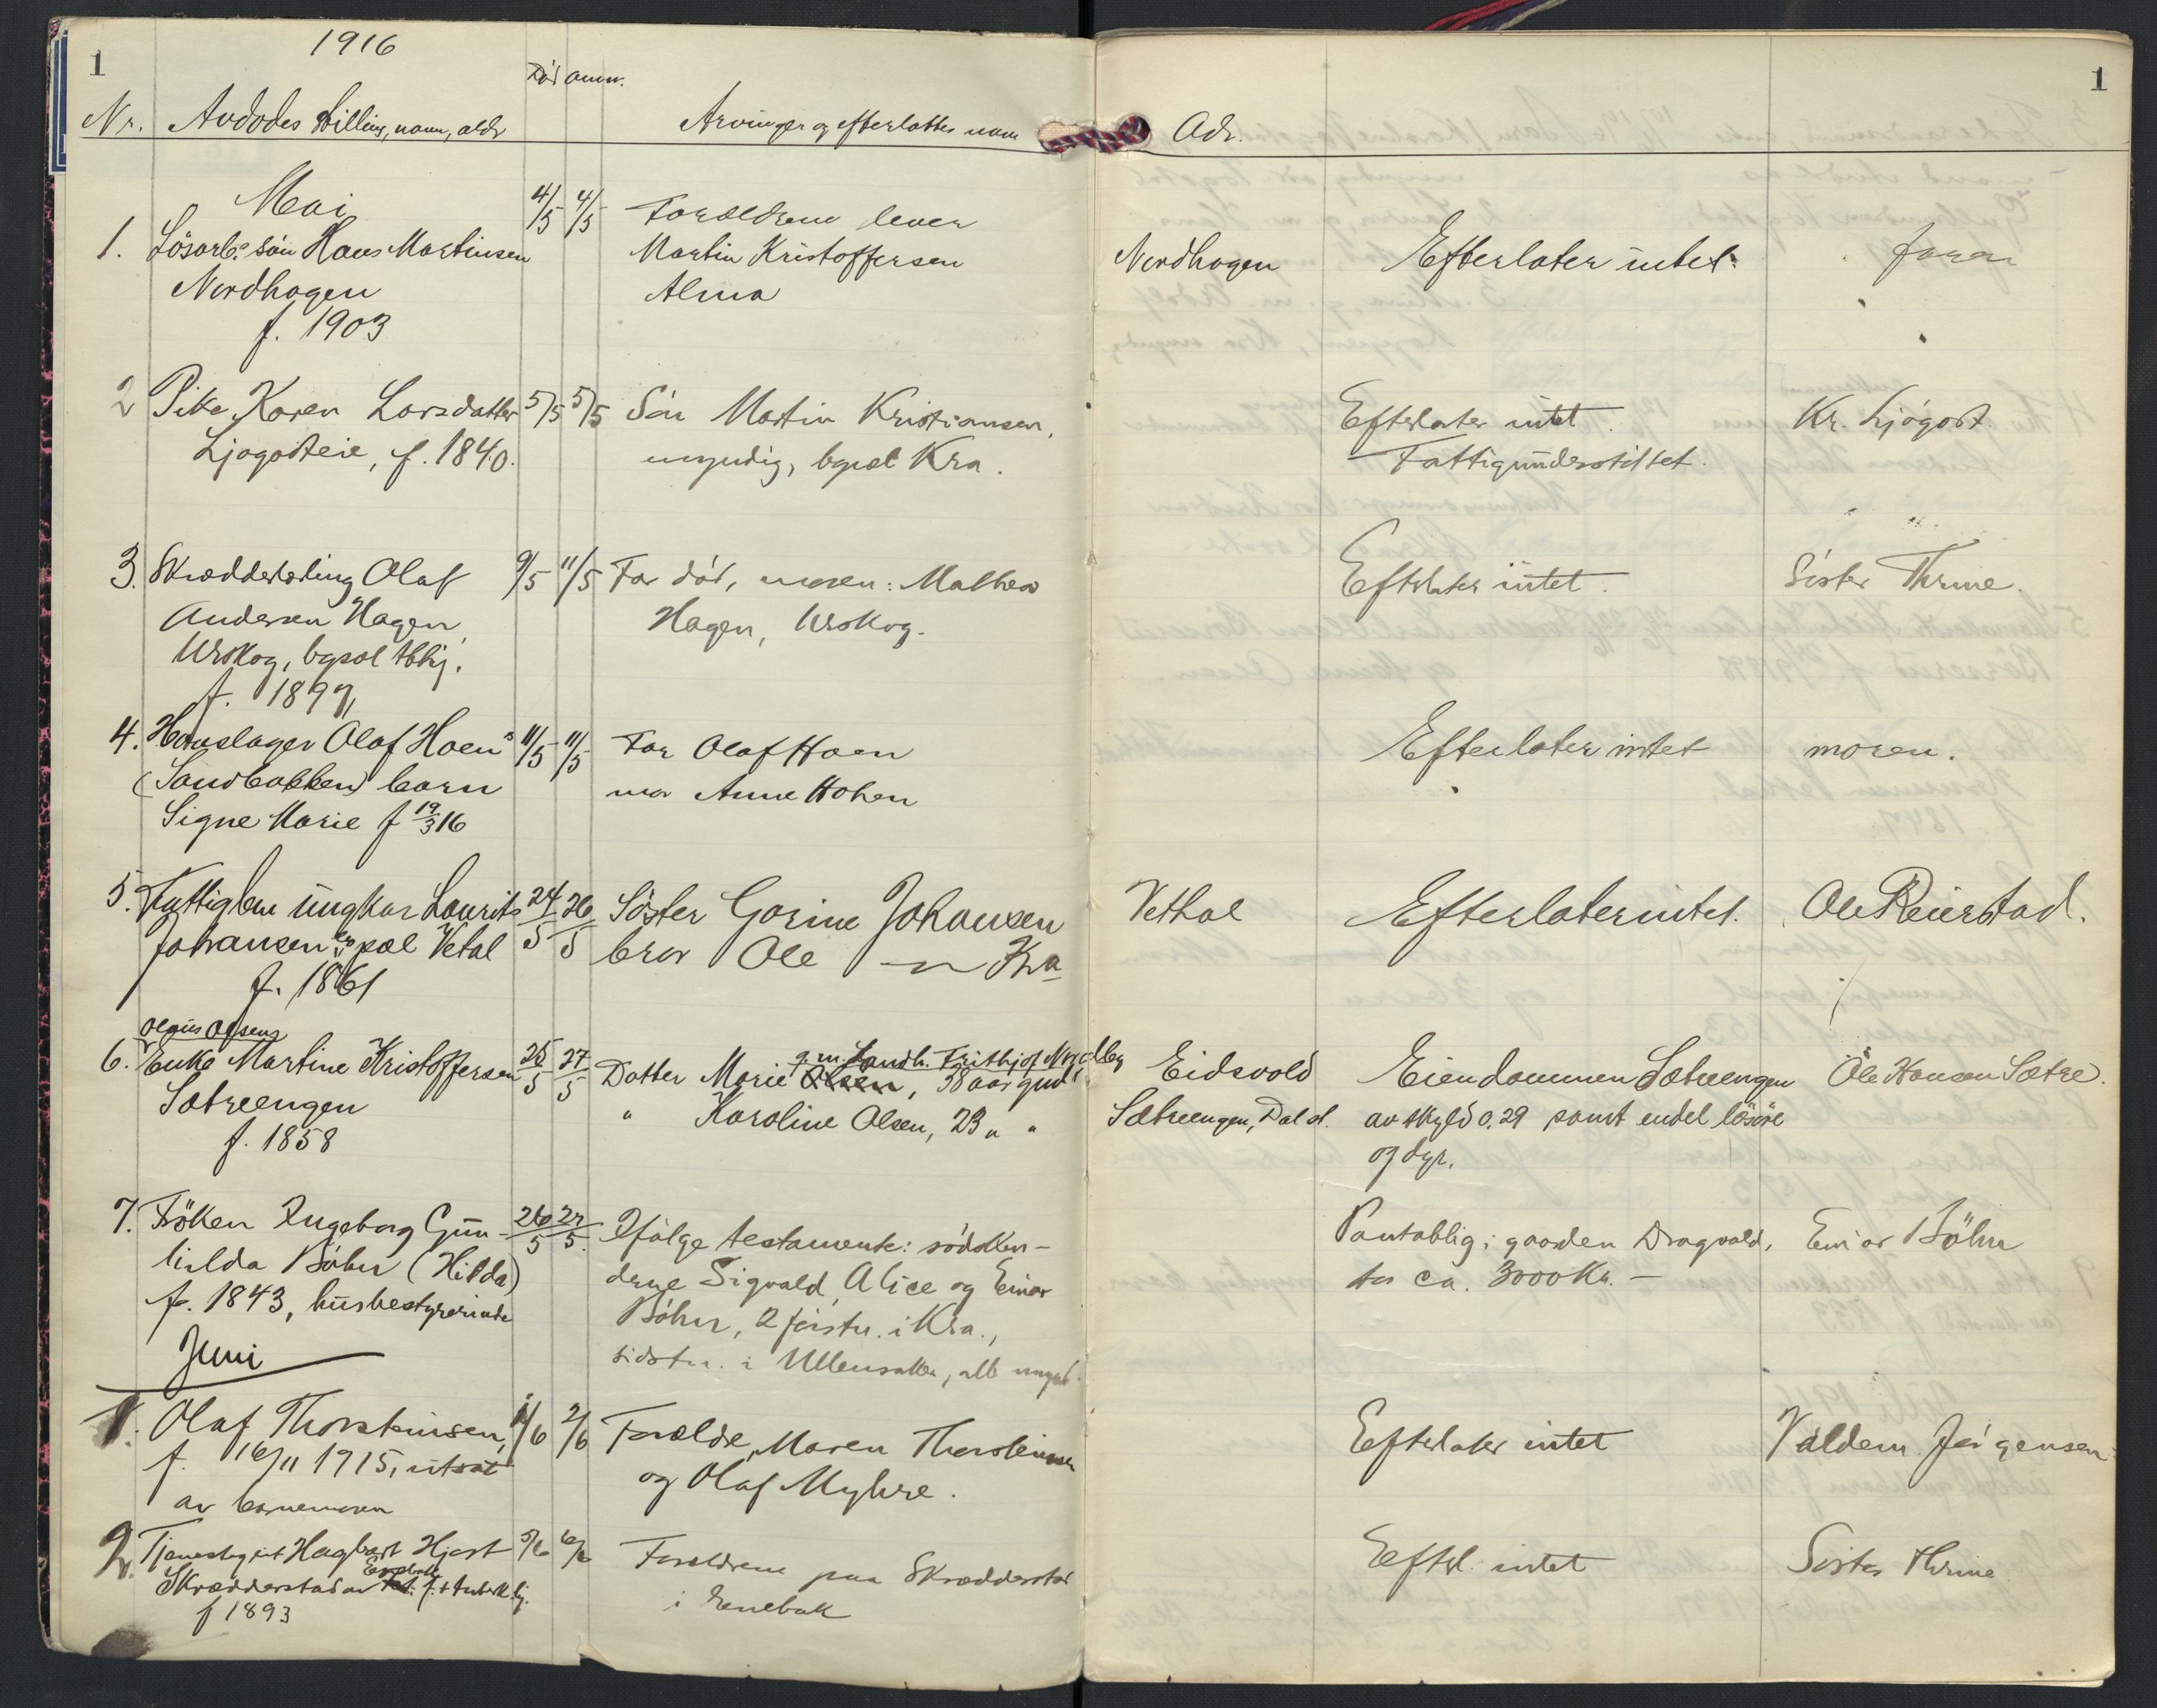 1
1916
1
Død anm.
Nr. Avdødes stilling, navn, alder
Arvinger og efterlattes navn
Adr.
Mai
1. Lösarb. sön Hans Martinsen
Nordhagen
f. 1903
4/5 4/5
Forældrene lever
Martin Kristoffersen
Alma
Nordhagen
Efterlater intet.
faren
2 Pike Karen Larsdatter
Ljøgodteie, f. 1840.
5/5 5/5
Sön Martin Kristiansen,
myndig, bopæl Kra.
Efterlater intet.
Fattigunderstöttet.
Kr. Ljøgodt
3. Skrædderlærling Olaf
Andersen Hagen,
Urskog, bopæl
f. 1897,
9/5 11/5
Far död, moren: Mathea
Hagen, Urskog.
Efterlater intet.
Söster Thrine.
4. Hovslager Olaf Hoens
(Sandbakken) barn
Signe Marie f 19/3 16
11/5 11/5
Far Olaf Hoen
mor Anne Hohen
Efterlater intet
moren.
5. Fattiglem ungkar Laurits
Johansen bopæl Vetal
f. 1861
24/5 26/5
Söster Gorine Johansen
bror Ole " Kra
Vethal
Efterlater intet.
Ole Reierstad.
Olaus Olsens
6. Enke Martine Kristoffersen
Sætreengen
f. 1858
25/5 27/5
g. m. Landh. Frithjof Nordby
Datter Marie Olsen, 38 aar gml.
" Karoline Olsen, 23 " "
Eidsvold
Sætreengen, Dal st.
Eiendommen Sætreengen
av skyld 0.29 samt endel lösöre
og dyr.
Ole Hansen Sætre.
7. Fröken Ingeborg Gun-
hilda Böhn (Hilda)
f. 1843, husbestyrerinde
26/5 27/5
Ifölge testamente: södsken-
dene Sigvald, Alice og Einar
Böhn, 2 förstn. i Kra.,
sidstn. i Ullensaker, alle mynd.
Panteoblig. i gaarden Dragvold,
for ca. 3000 Kr. —
Einar Böhn
Juni
1. Olaf Thorsteinsen,
f. 16/11 1915, utsat
av barnemoren
1/6 2/6
Forældre, Maren Thorsteinsen
og Olaf Myhre.
Efterlater intet
Valdem. Jörgensen
2. Tjenestegut Hagbart Hjart
Skrædderstad av Enebak
f 1893
5/6 6/6
Forældrene paa Skrædderstad
i Enebak
Efterl. intet
Söster Thrine